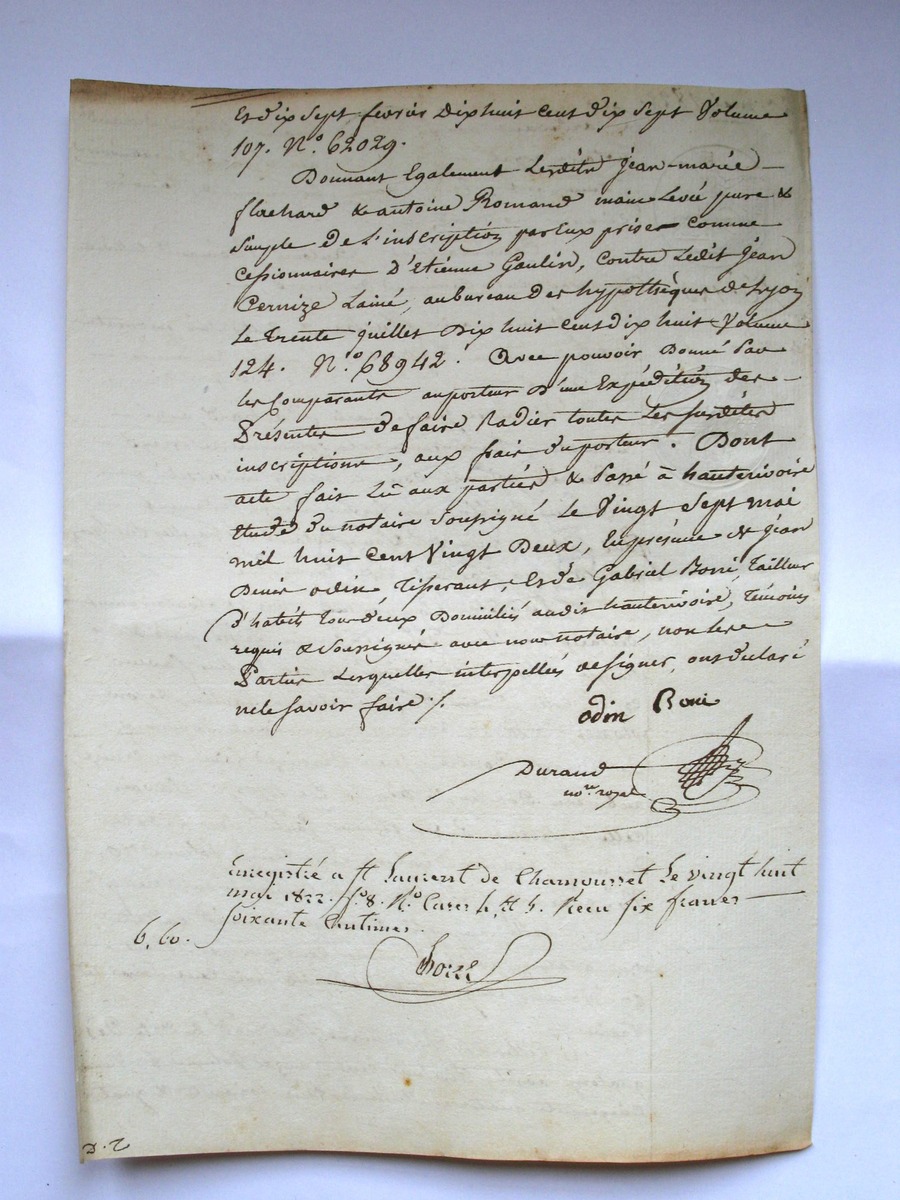 Et dix sept fevrier dix huit cent dix sept Volume
107. N.º 62029.
Donnant Egalement Lesdits Jean-marie
flachard & antoine Romand main Levée pure &
Simple de L'inscription par Eux prise comme
cessionnaires D'Etienne Gaulin, contre Ledit Jean
Cernize Lainé, au bureau des hypothèques de Lyon
Le Trente juillet Dix huit cent dix huit Volume
124. N.º 68942. Avec pouvoir Donné Par
les Comparants au porteur D'une Expédition des
Présentes de faire Radier toutes Les susdites
inscriptions, aux frais du porteur. Dont
acte fait Lû aux parties & Passé à hauterivoire
Etude du notaire soussigné Le Vingt Sept mai
mil huit Cent Vingt Deux, En présence de Jean
Denis odin, Tisserant, Et de Gabriel Boni, Tailleur
D'habits tous deux Domiciliés audit hauterivoire, Témoins
requis & Soussignés avec nous notaire, non les
Parties Lesquelles interpellées de signer, ont déclaré
ne le savoir faire ./.
odin Boni
Durand
no.re royal
Enregistré a St Laurent de Chamousset Le vingt huit
mai 1822. f.º 8. R.º Cases 4, et 5. Recu six francs
soixante Centimes.
6, 60.
D. T